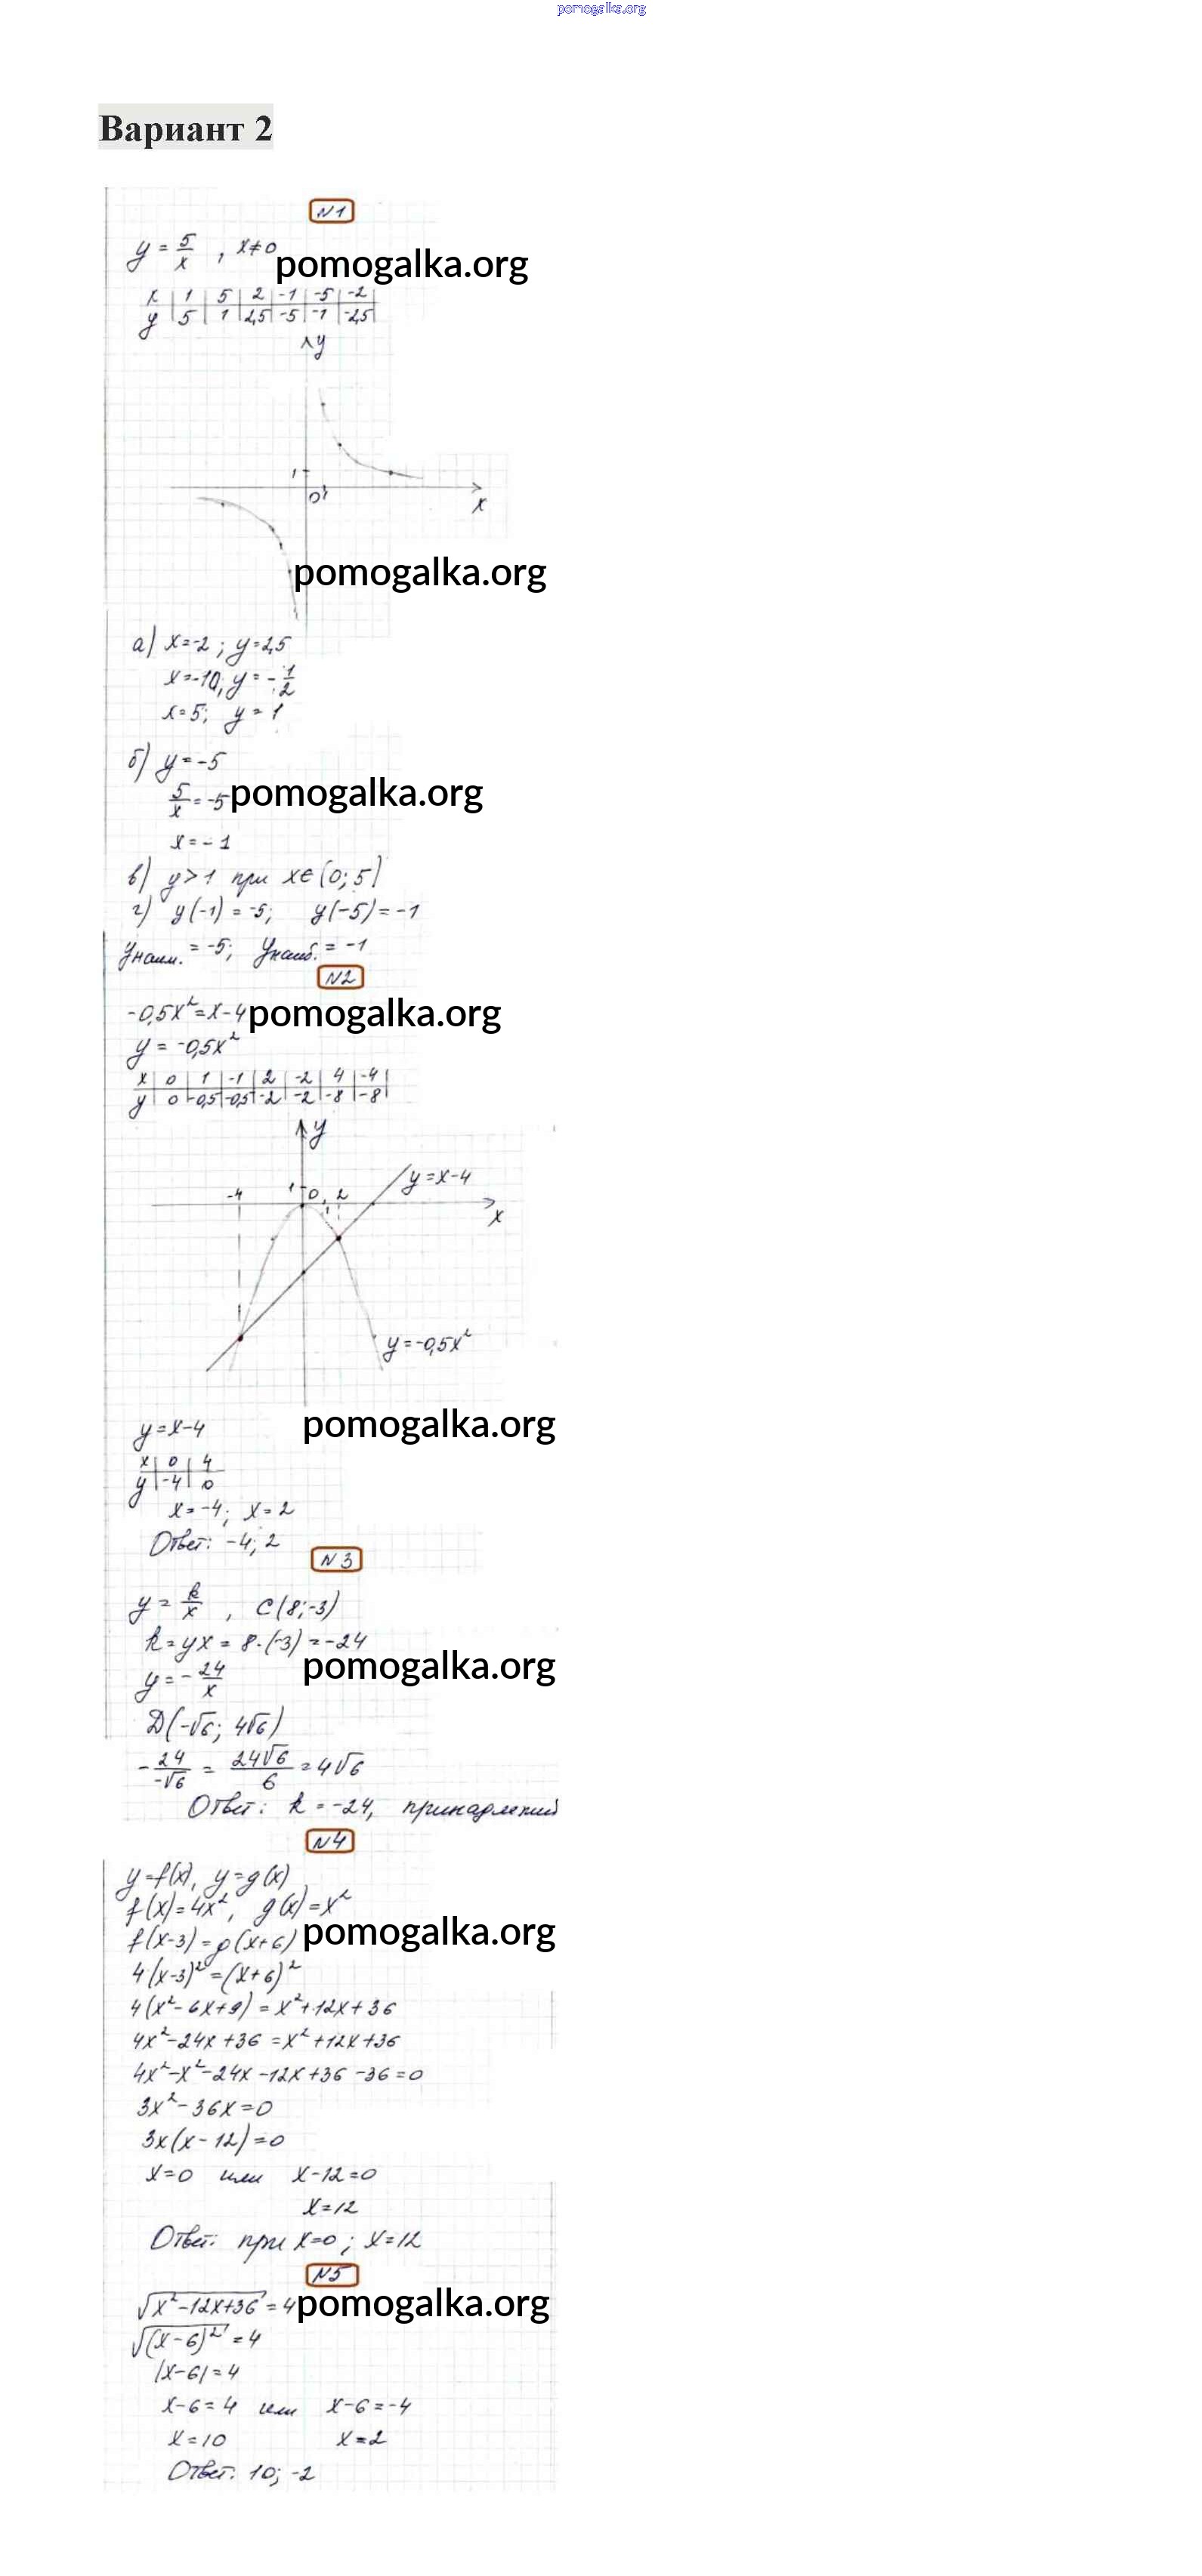 pomogalka.org
Вариант 2
N1
y = 5/x , x≠0
pomogalka.org
x | 1 | 5 | 2 | -1 | -5 | -2
y | 5 | 1 | 2,5 | -5 | -1 | -2,5
y
1
0 1
x
pomogalka.org
а) x=-2 ; y=2,5
x=-10; y= -1/2
x=5; y = 1
б) y = -5
5/x = -5
pomogalka.org
x = -1
в) y>1 при x∈(0;5)
г) y(-1) = -5; y(-5) = -1
yнаим. = -5; yнаиб. = -1
N2
-0,5x²=x-4
pomogalka.org
y = -0,5x²
x | 0 | 1 | -1 | 2 | -2 | 4 | -4
y | 0 | -0,5 | -0,5 | -2 | -2 | -8 | -8
y
y=x-4
-4 1 0 1 2
x
y=-0,5x²
pomogalka.org
y=x-4
x | 0 | 4
y | -4 | 0
x=-4; x=2
Ответ: -4; 2
N3
y = k/x , C(8;-3)
k=yx = 8·(-3) = -24
pomogalka.org
y= -24/x
D(-√6; 4√6)
-24/-√6 = 24√6/6 = 4√6
Ответ: k = -24, принадлежит
N4
y=f(x), y=g(x)
f(x)=4x², g(x)=x²
pomogalka.org
f(x-3)=g(x+6)
4(x-3)²=(x+6)²
4(x²-6x+9)=x²+12x+36
4x²-24x+36=x²+12x+36
4x²-x²-24x-12x+36-36=0
3x²-36x=0
3x(x-12)=0
x=0 или x-12=0
x=12
Ответ: при x=0; x=12
N5
√x²-12x+36 = 4
pomogalka.org
√(x-6)² = 4
|x-6|=4
x-6=4 или x-6=-4
x=10 x=2
Ответ: 10; -2